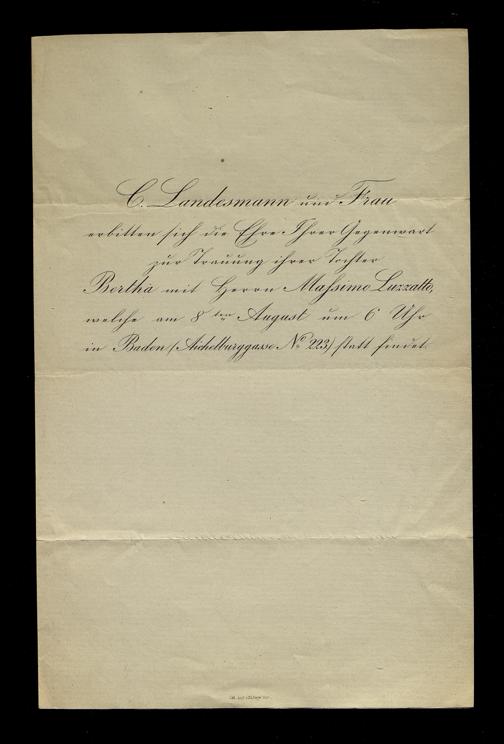 C. Landesmann und Frau
erbitten sich die Ehre Ihrer Gegenwart
zur Trauung ihrer Tochter
Bertha mit Herrn Maſsimo Luzzatto,
welche am 8ten August um 6 Uhr
in Baden (Aichelburggasse No 223) statt findet.